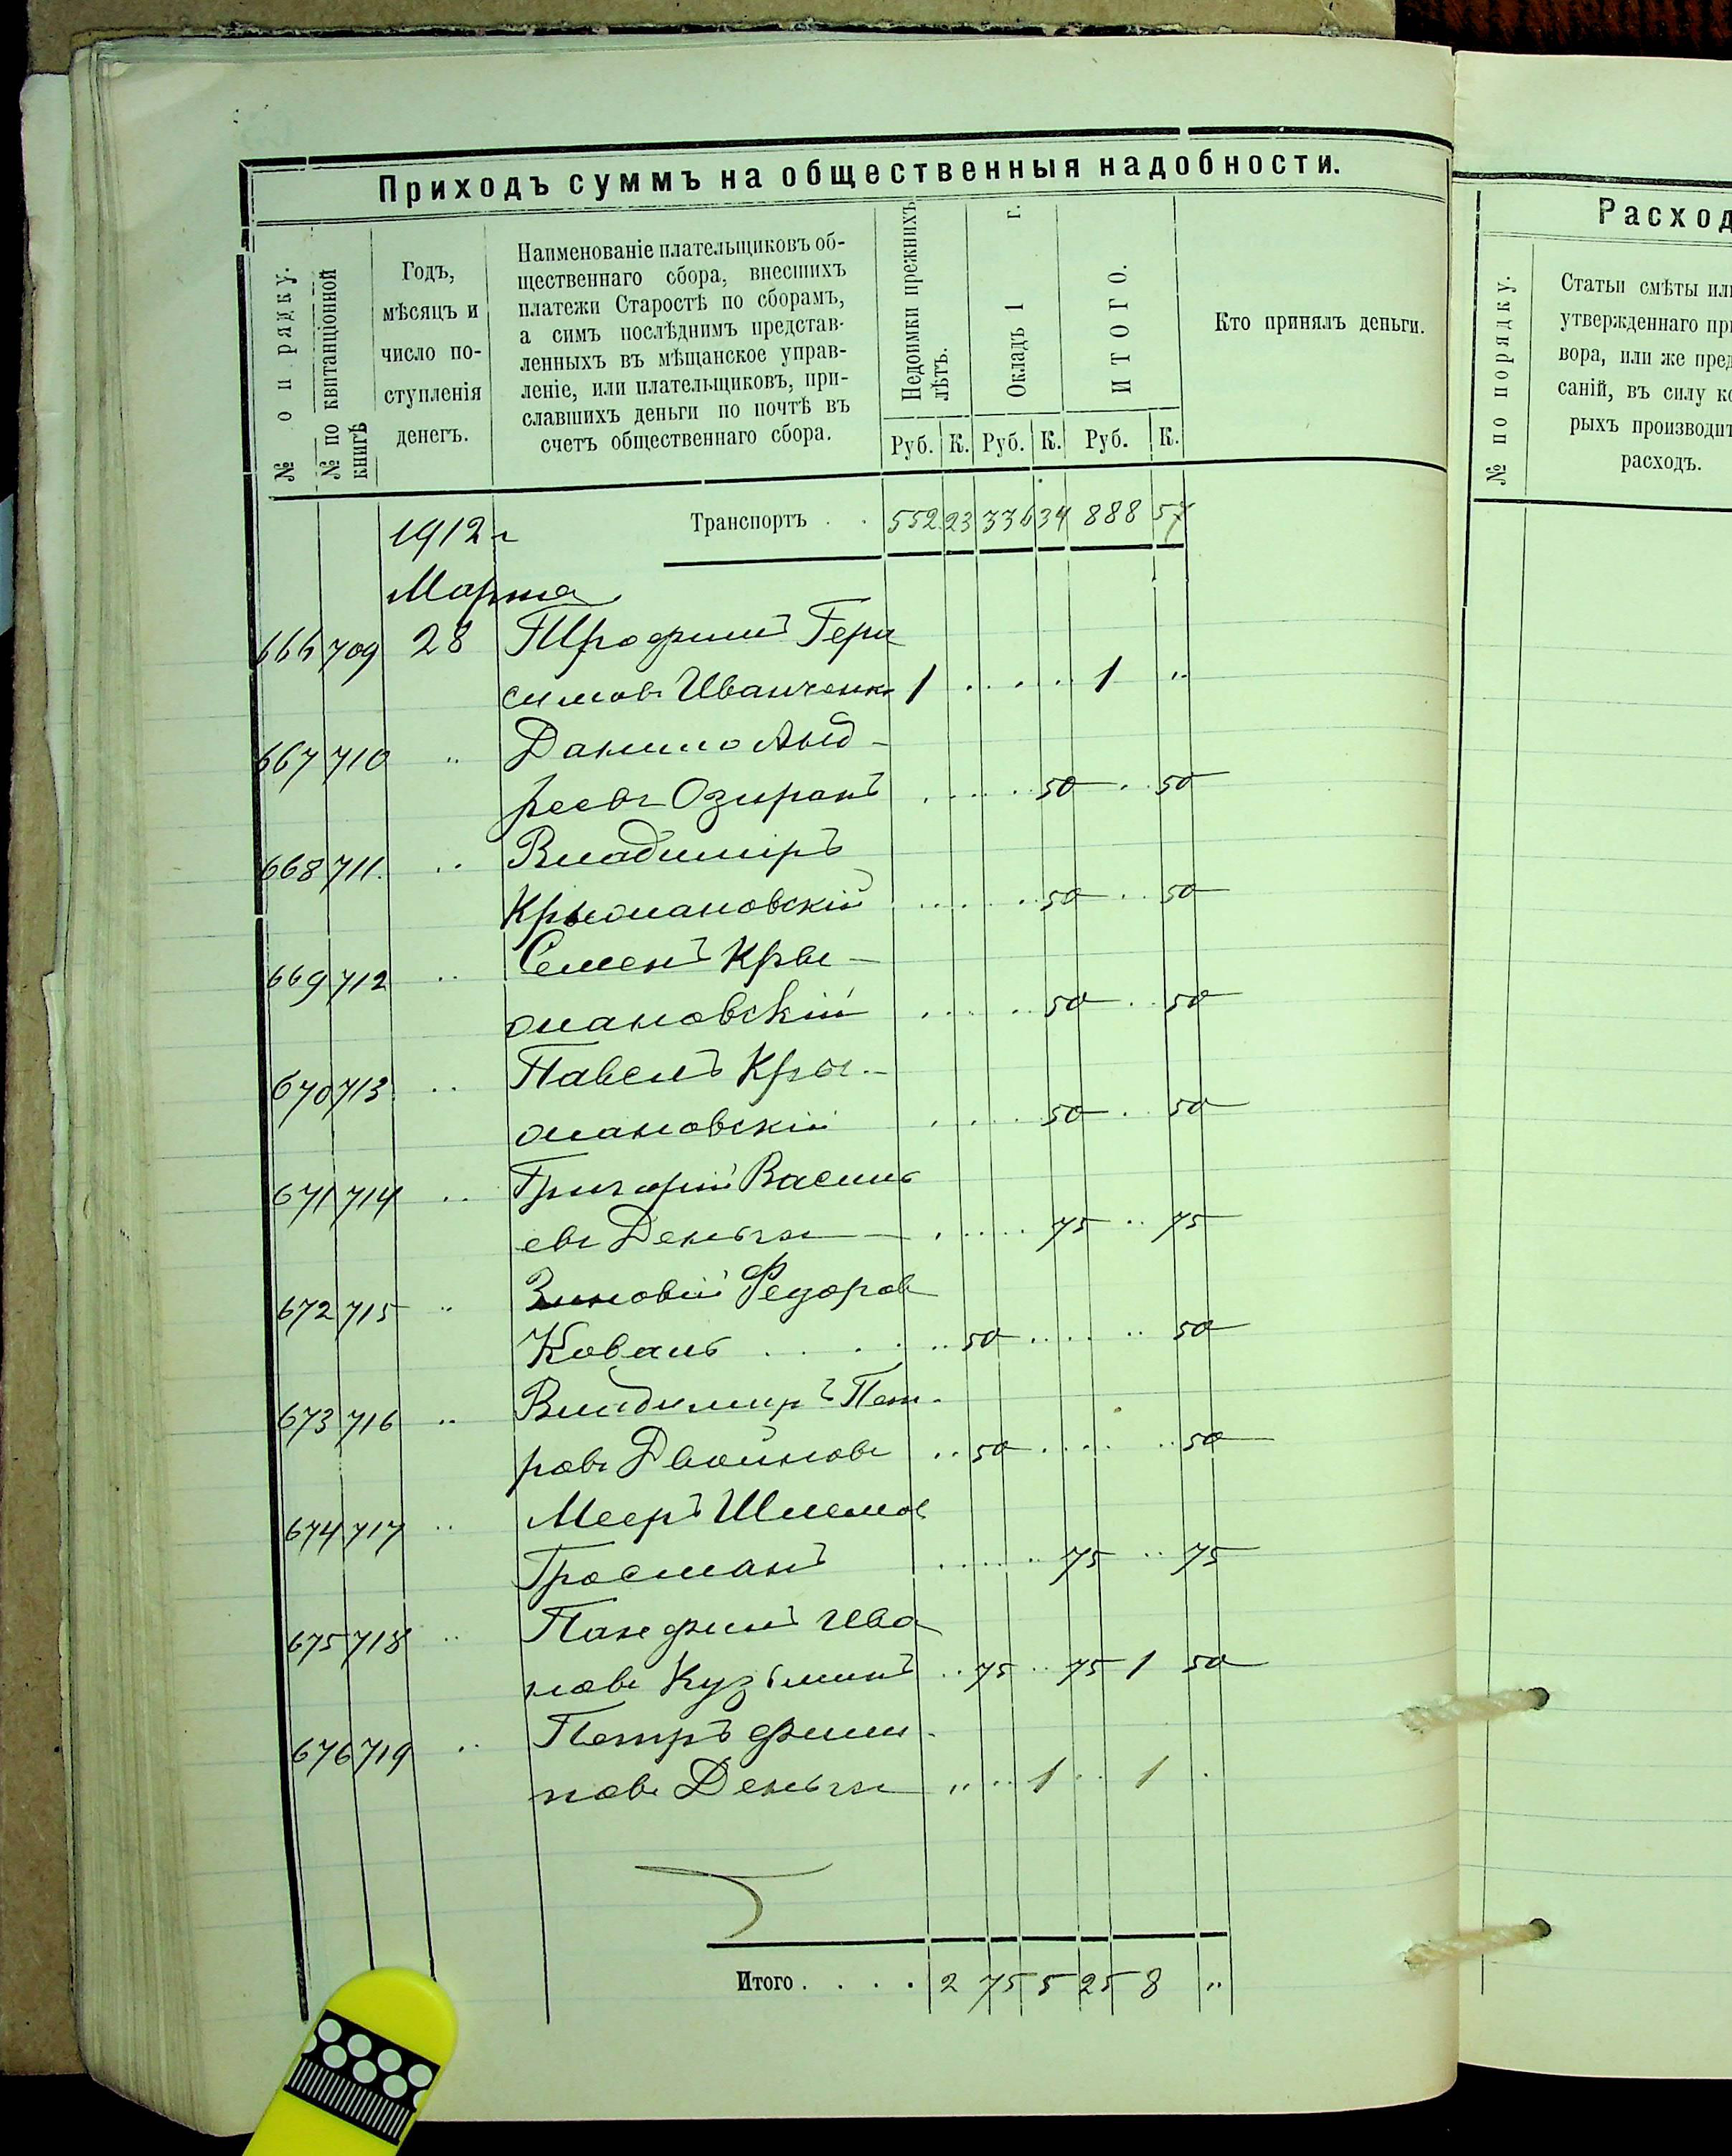 Приходъ суммъ на общественныя надобности.
№ по рядку.
№ по квитанціонной книгѣ
Годъ,
мѣсяцъ и
число по-
ступленія
денегъ.
Наименованіе плательщиковъ об-
щественнаго сбора, внесшихъ
платежи Старостѣ по сборамъ,
а симъ послѣднимъ представ-
ленныхъ въ мѣщанское управ-
леніе, или плательщиковъ, при-
славшихъ деньги по почтѣ въ
счетъ общественнаго сбора.
Недоимки прежнихъ
лѣтъ.
Окладъ 1 г.
ИТОГО.
Кто принялъ деньги.
Руб. К. Руб. К. Руб. К.
1912 г Транспортъ . . 552 23 336 34 888 57
Марта
666 709 28 Трофимъ Гера
симовъ Иванченко 1 . . . . 1 "
667 710 " Данило Анд-
реевъ Озиранъ . . . . 50 . . 50
668 711. " Владиміръ
Крыжановскій . . . . 50 . . 50
669 712 " Семенъ Кры-
жановскій . . . . 50 . . 50
670 713 " Павелъ Кры-
жановскій . . . . 50 . . 50
671 714 " Григорій Василь
евъ Деньга . . . . 75 . . 75
672 715 " Зиновій Федоров
Коваль . . . . . . 50 . . . . 50
673 716 " Владимиръ Пет-
ровъ Двойновъ . . 50 . . . . 50
674 717 " Мееръ Шлемов
Гросманъ . . . . 75 . . 75
675 718 " Панфилъ Ива
новъ Кузьминъ . . 75 . . 75 1 50
676 719 " Петръ Фили-
повъ Деньга " . . 1 . . 1 .
Итого . . . . 2 75 5 25 8 "
Расход
№ по порядку.
Статьи смѣты или
утвержденнаго при
вора, или же пред
саній, въ силу ко
рыхъ производит
расходъ.